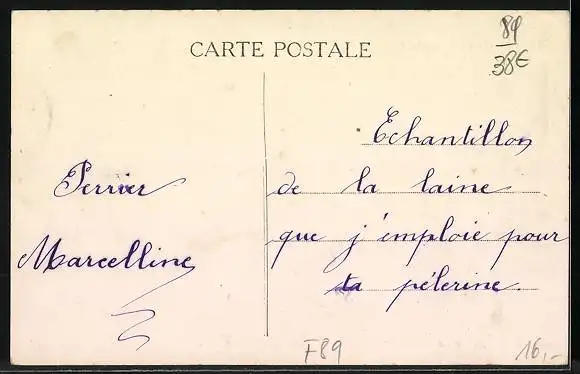 CARTE POSTALE
89
38€
Echantillon
de la laine
que j'emploie pour
ta pélerine.
Perrier
Marcelline
F89
16,-